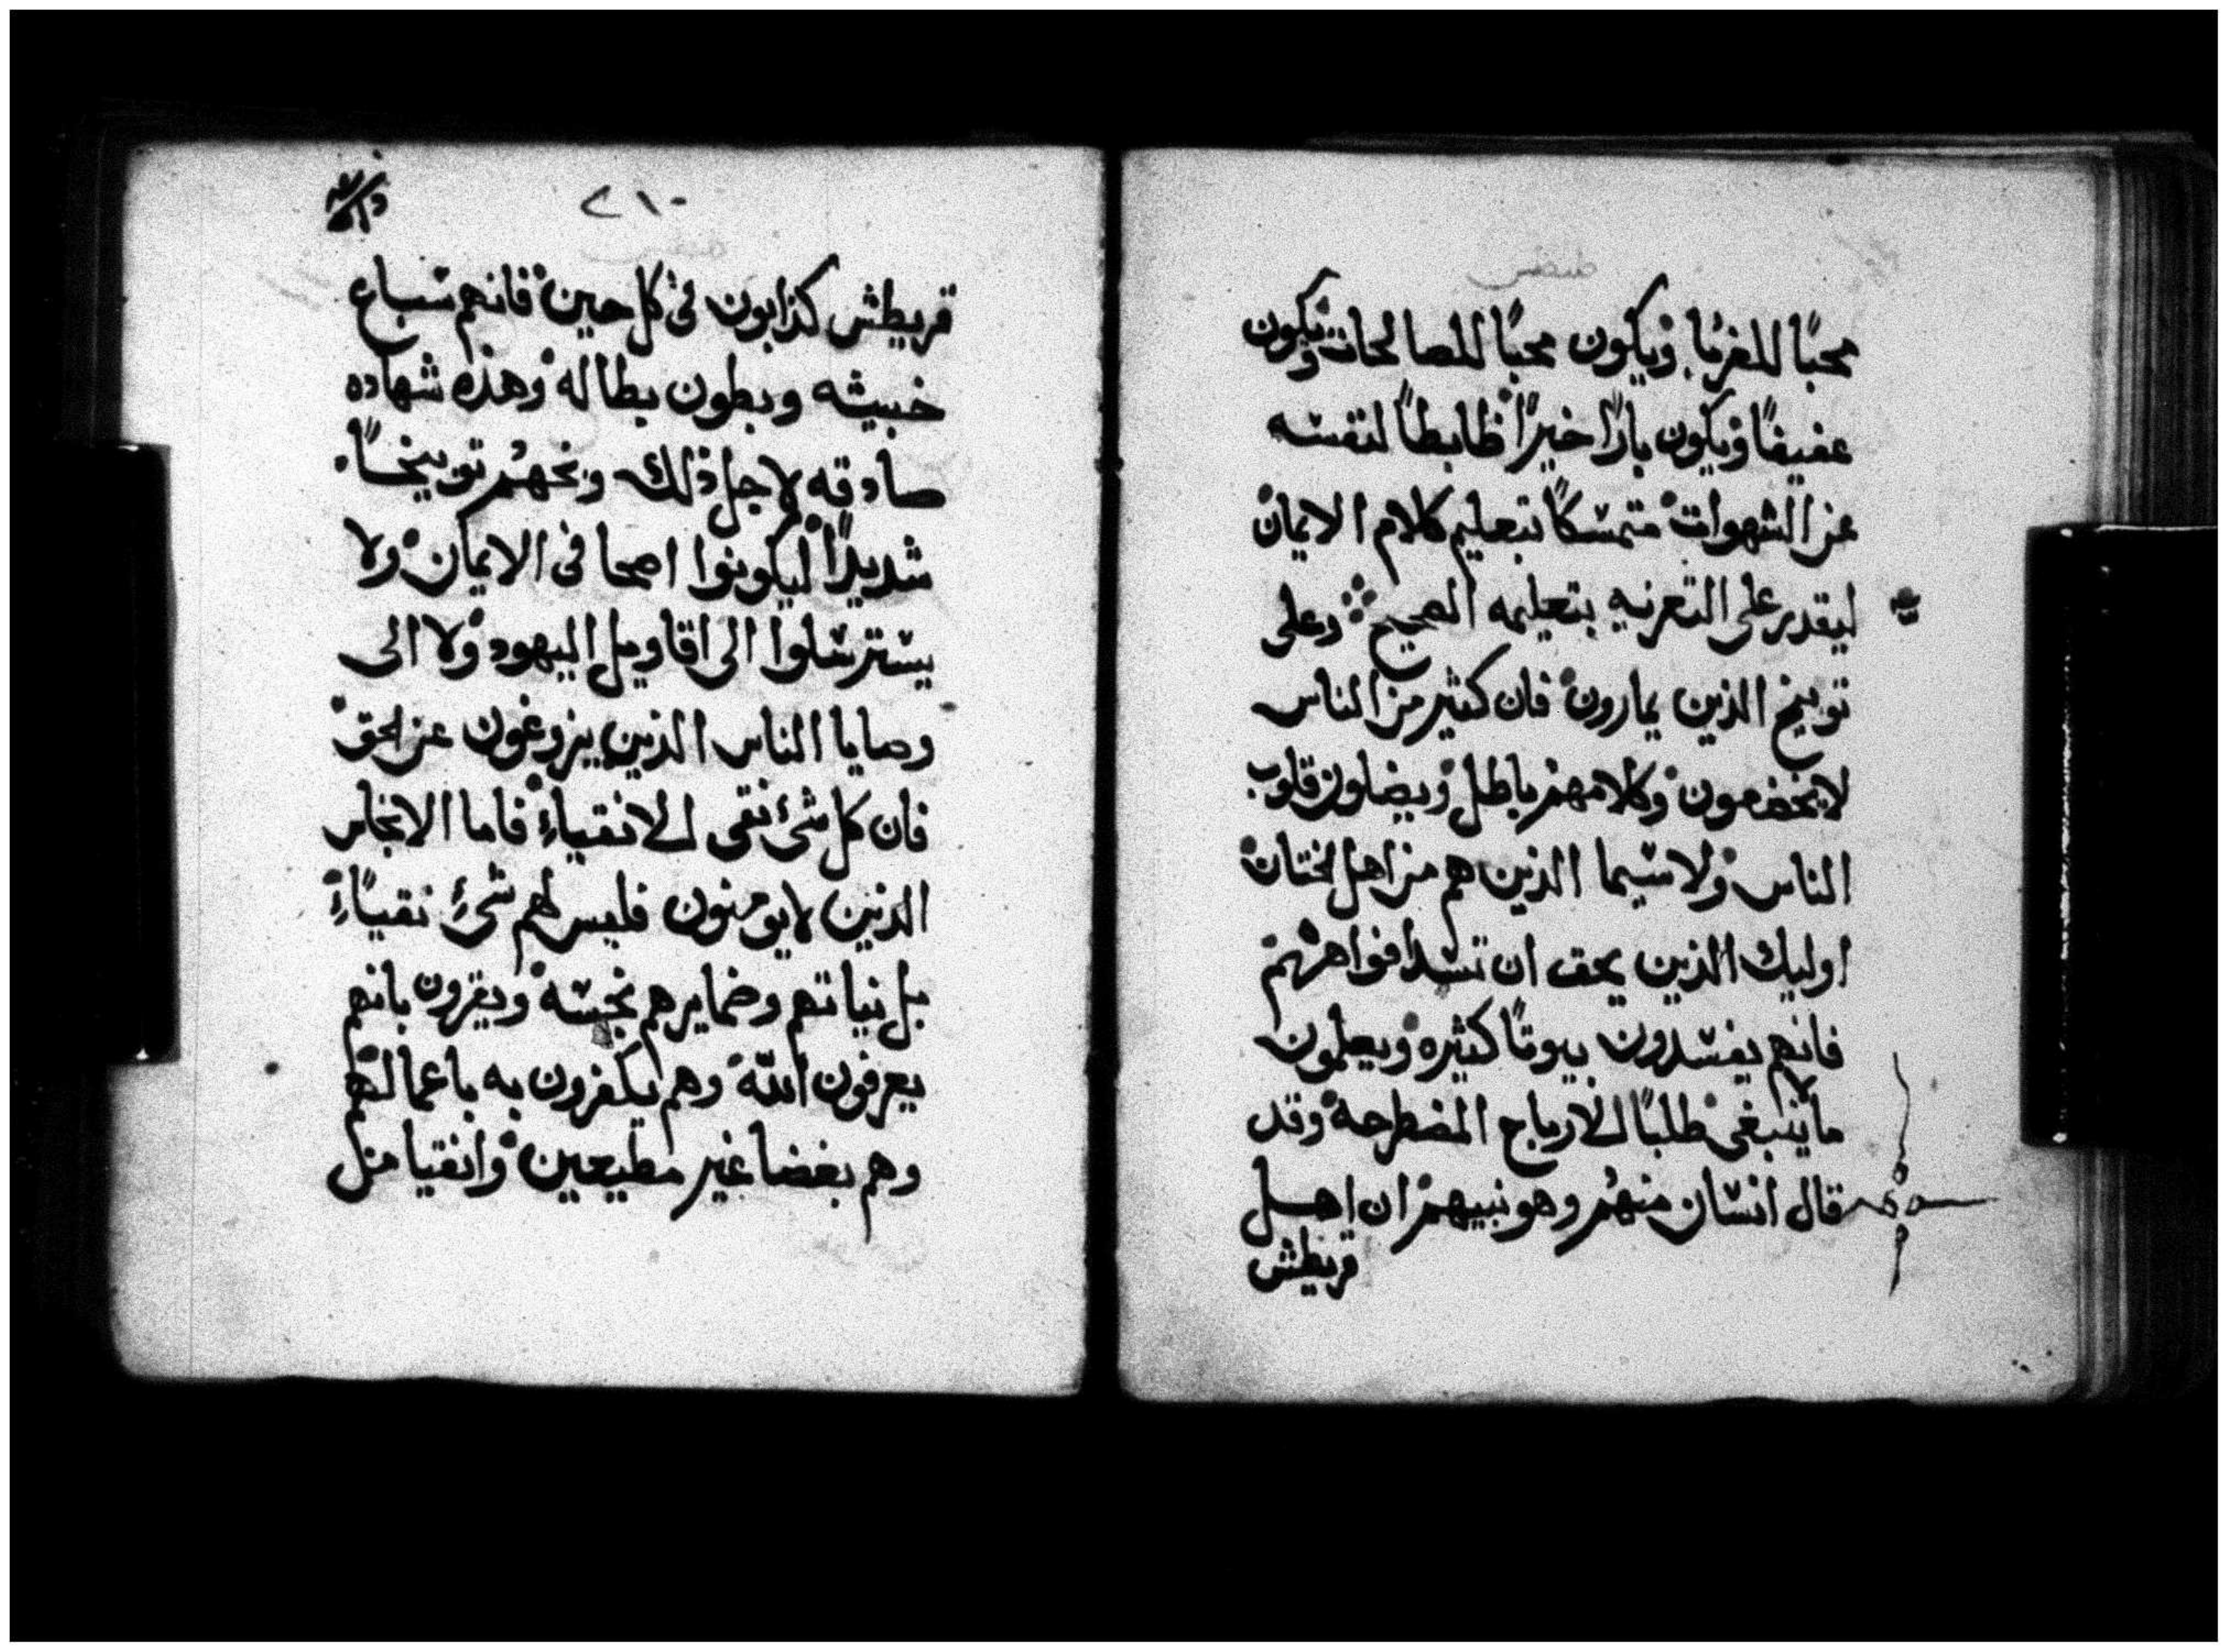 محبًا للغربا. ويكون محبًا للصالحات ويكون
عفيفًا ويكون بارًا خيرًا ظابطًا لنفسه
عن الشهوات متمسكًا بتعليم كلام الايمان
ليقدر على التعزيه بتعليمه الصحيح وعلى
توبيخ الذين يمارون فان كثير من الناس
لا يخضعون وكلامهم باطل ويضلون قلوب
الناس ولا سيما الذين هم من اهل الختان
اوليك الذين يحق ان تسد افواههم
فانهم يفسدون بيوتًا كثيره ويعلمون
ما لا ينبغي طلبًا للارباح المضطرحه وقد
قال انسان منهم وهو نبيهم ان اهل
قريطش
٢١٠
قريطش كذابون في كل حين فانهم سباع
خبيثه وبطون بطاله وهذه شهاده
صادقه لاجل ذلك وبخهم توبيخًا
شديدًا ليكونوا اصحا في الايمان ولا
يسترسلوا الى اقاويل اليهود ولا الى
وصايا الناس الذين يزوغون عن الحق
فان كل شئ نقى للانقياء فاما الانجاس
الذين لا يومنون فليس لهم شئ نقياء
بل نياتهم وضمايرهم نجسه ويقرون بانهم
يعرفون الله وهم يكفرون به باعمالهم
وهم بغضا غير مطيعين وانفيا من كل